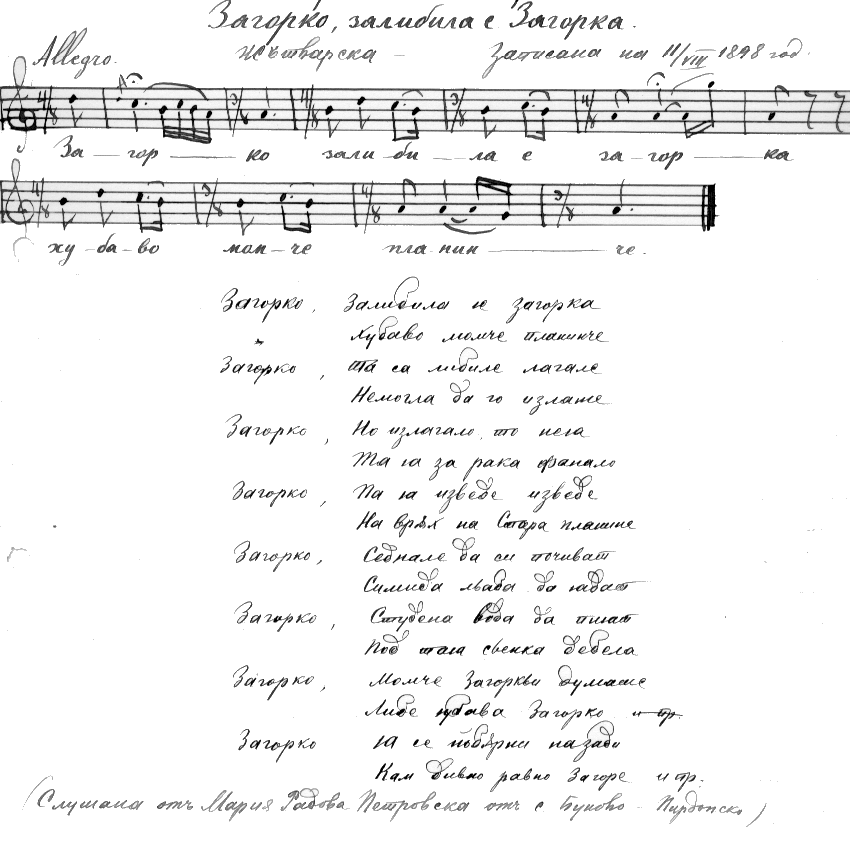 Загорко, залибила е Загорка.
Allegro. Жътварска — Записана на 11/VIII 1898 год.
За — гор — ко зали — би — ла е за — гор — ка
ху — ба — во мом — че пла — нин — че.
Загорко, Залибила ю загорка
Хубаво момче планинче
Загорко, та са либиле лагале
Немогла да го излаже
Загорко, Но излагало то нея
Та ю за рака фанало
Загорко, Па ю изведе изведе
На врях на Стара планине
Загорко, Седнале да си почиват
Симида льаба да юдат
Загорко, Студена вода да пиют
Под тая сенка дебела
Загорко, Момче Загоркьи думаше
Либе хубава Загорко
Загорко Ю се побярни назади
Кам дивно равно Загоре и пр.
(Слушана отъ Мария Радова Петровска отъ с Буново - Пирдопско)